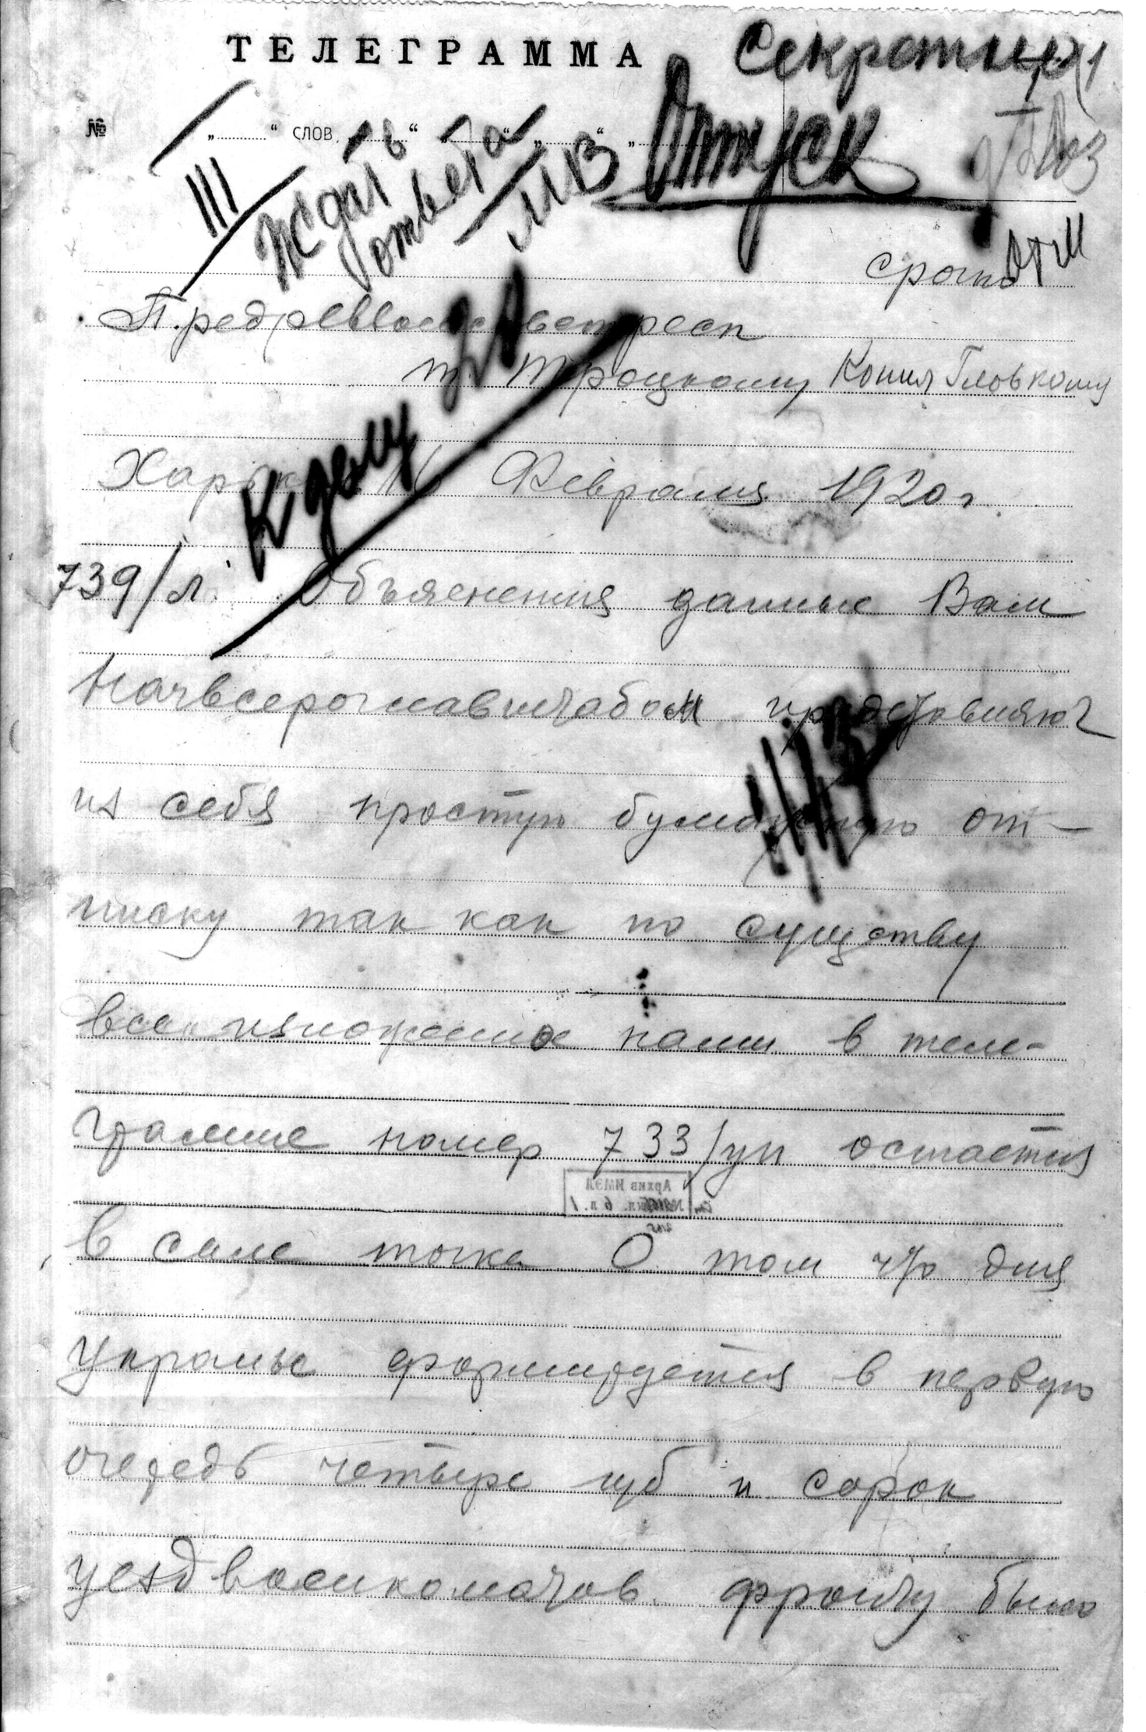 ТЕЛЕГРАММА Секретно 1
№ „ “ слов. „ “ „ “ „ Отпуск
III
Ждать
ответа
срочно
Предреввоенсоветресп
т Троцкому Копия Главкому
К делу
Харьк Февраля 1920 г.
739/л. Объяснения данные Вам
Начвсероглавштабом представляют
из себя простую бумажную от-
писку так как по существу
все изложенное нами в теле-
грамме номер 733/уп остается
Архив ИМЭЛ
в силе точка О том что для
Украины формируется в первую
очередь четыре губ и сорок
уездвоенкоматов фронту было